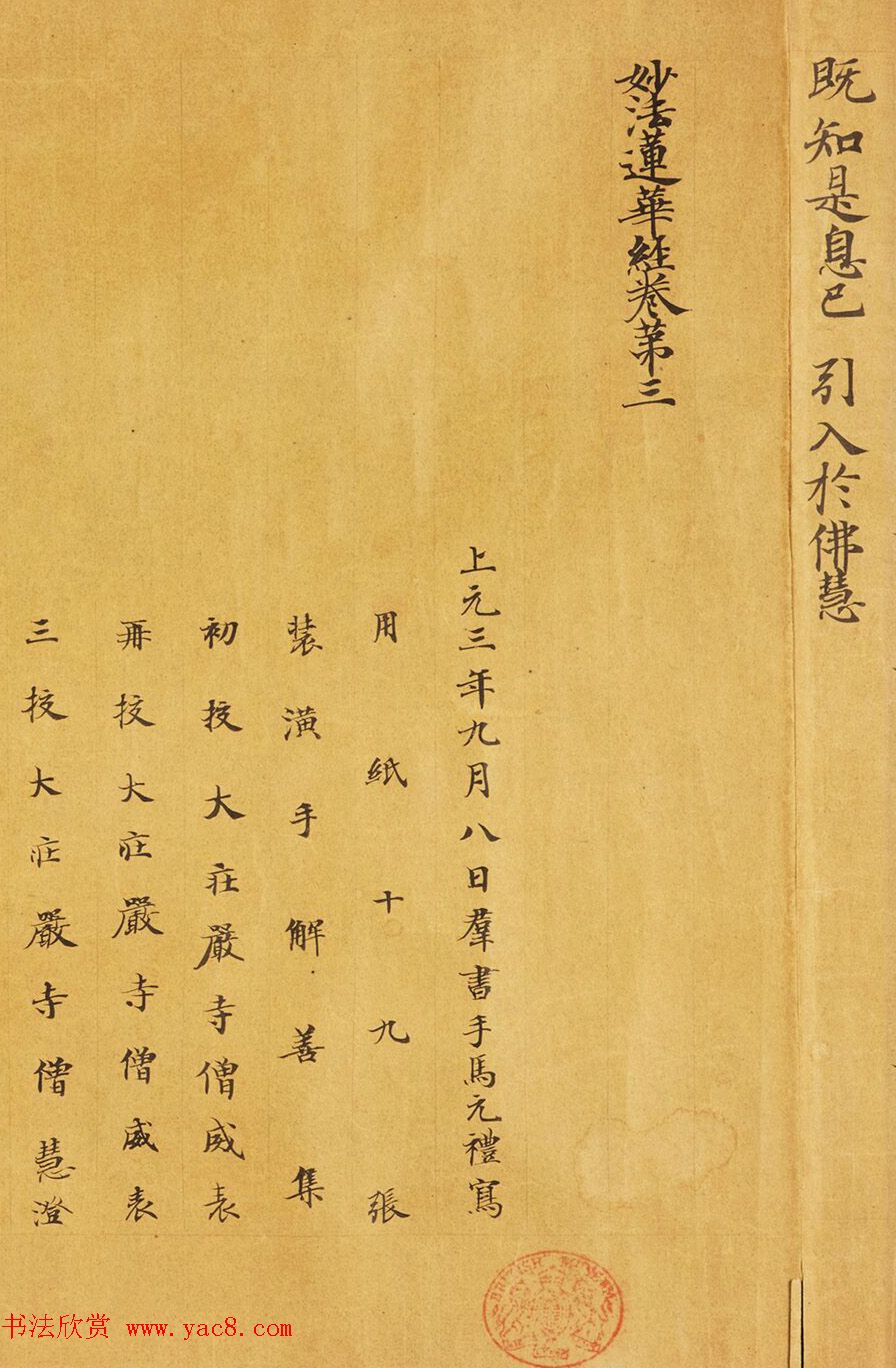 既知是息已 引入於佛慧
妙法蓮華經卷第三
上元三年九月八日羣書手馬元禮寫
用紙十九張
装潢手解善集
初挍大莊嚴寺僧威表
再挍大莊嚴寺僧威表
三挍大莊嚴寺僧慧澄
BRITISH MUSEUM
书法欣赏 www.yac8.com